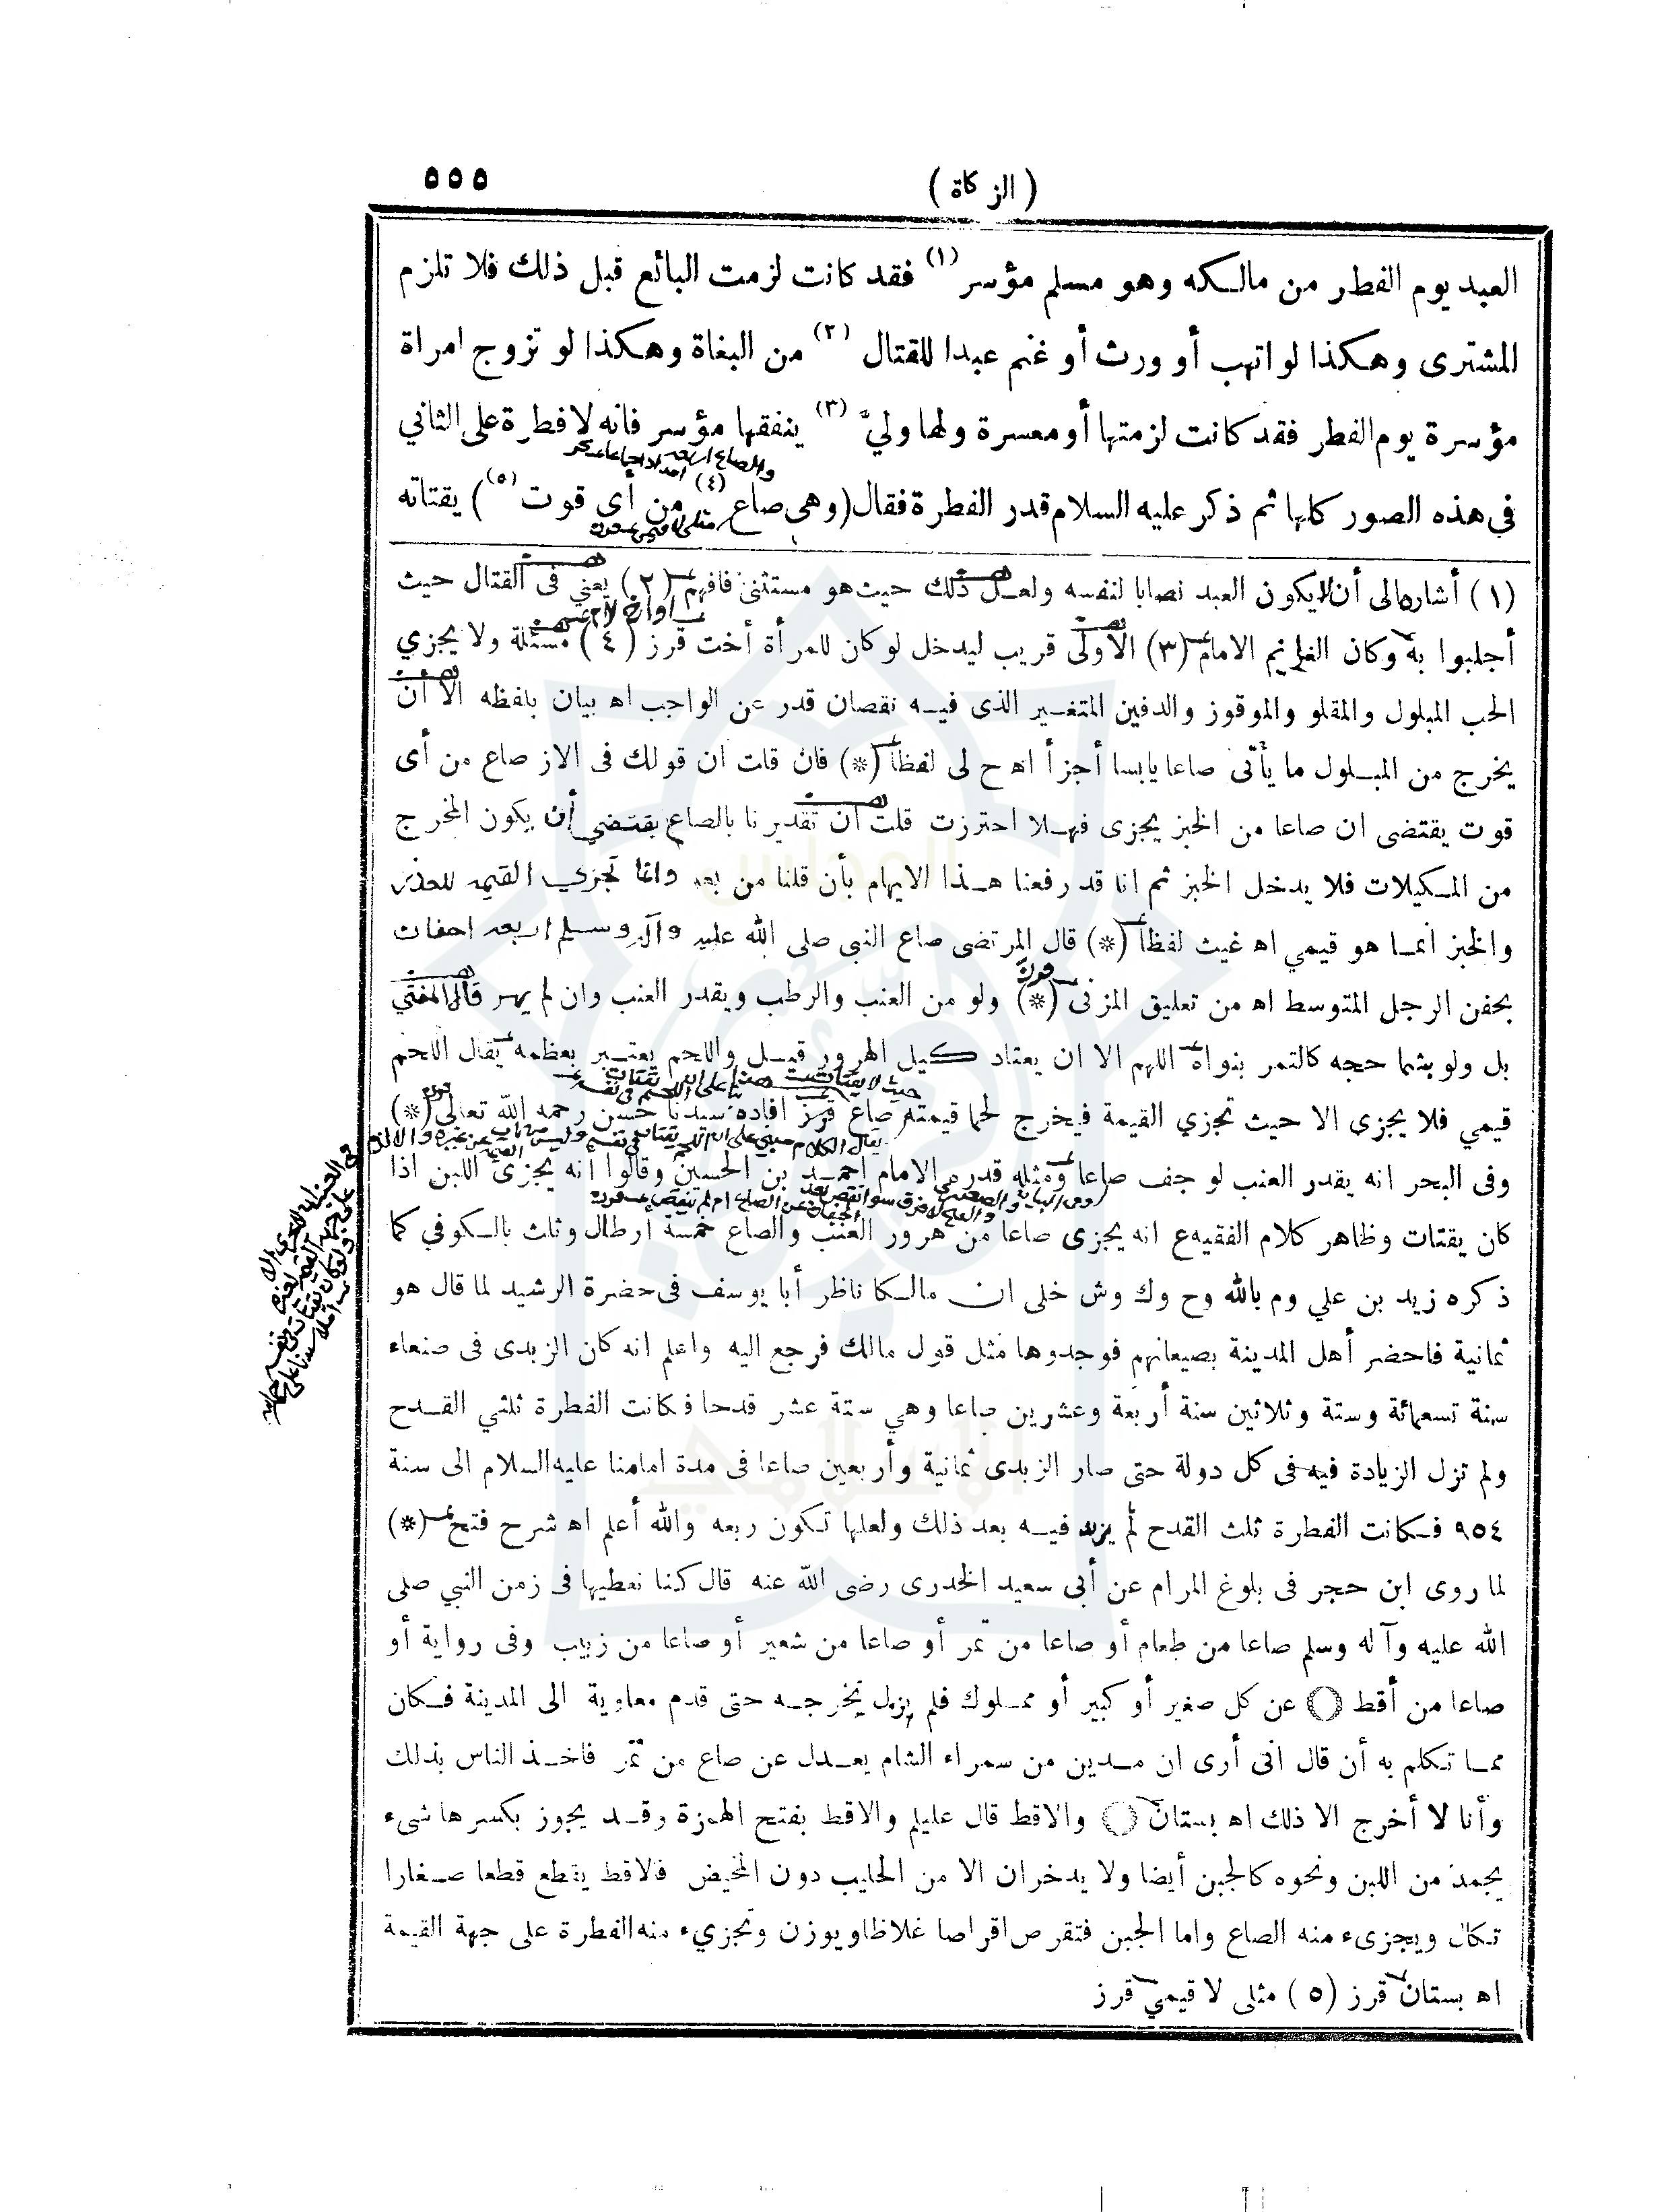 ٥٥٥
( الزكاة )
العبد يوم الفطر من مالكه وهو مسلم مؤسر (١) فقد كانت لزمت البائع قبل ذلك فلا تلزم
المشترى وهكذا لو اتهب أو ورث أو غنم عبدا للقتال (٢) من البغاة وهكذا لو تزوج امراة
مؤسرة يوم الفطر فقد كانت لزمتها أو معسرة ولها وليّ (٣) ينفقها مؤسر فانه لا فطرة على الثاني
في هذه الصور كلها ثم ذكر عليه السلام قدر الفطرة فقال (وهي صاع (٤) من أى قوت (٥) ) يقتاته
(١) أشاره الى أن لايكون العبد نصابا لنفسه ولعل ذلك حيث هو مستثنى فافهم (٢) يعني فى القتال حيث
أجلبوا به وكان الغانم الامام (٣) الأولى قريب ليدخل لو كان للمرأة أخت قرز (٤) مسئلة ولا يجزي
الحب المبلول والمقلو والموقوز والدفين المتغير الذى فيه نقصان قدر عن الواجب اه بيان بلفظه الا أن
يخرج من المبلول ما يأتى صاعا يابسا أجزأ اه ح لى لفظا (*) فان قلت ان قولك فى الاز صاع من أى
قوت يقتضى ان صاعا من الخبز يجزى فهلا احترزت قلت ان تقديرنا بالصاع يقتضي أن يكون المخرج
من المكيلات فلا يدخل الخبز ثم انا قد رفعنا هذا الايهام بأن قلنا من بعد وانما تجزي القيمه للعذر
والخبز انما هو قيمي اه غيث لفظا (*) قال المرتضى صاع النبى صلى الله عليه وآله وسلم اربعه احفنات
بحفن الرجل المتوسط اه من تعليق المزنى (*) ولو من العنب والرطب ويقدر العنب وان لم يهر قال المفتي
بل ولو بثما حجه كالتمر بنواة اللهم الا ان يعتاد كيل المهرور قيل واللحم يعتبر بعظمه يقال اللحم
قيمي فلا يجزى الا حيث تجزي القيمة فيخرج لحما قيمته صاع قرز افاده سيدنا حسن رحمه الله تعالى (*)
وفى البحر انه يقدر العنب لو جف صاعا ومثله قدره الامام احمد بن الحسين وقالوا انه يجزى اللبن اذا
كان يقتات وظاهر كلام الفقيه ع انه يجزى صاعا من هرور العنب والصاع خمسة أرطال وثلث بالكوفي كما
ذكره زيد بن علي وم بالله وح وك وش خلى ان مالكا ناظر أبا يوسف فى حضرة الرشيد لما قال هو
ثمانية فاحضر أهل المدينة بصيعانهم فوجدوها مثل قول مالك فرجع اليه واعلم انه كان الزبدى فى صنعاء
سنة تسعمائة وستة وثلاثين سنة أربعة وعشرين صاعا وهي ستة عشر قدحا فكانت الفطرة ثلثي القدح
ولم تزل الزيادة فيه فى كل دولة حتى صار الزبدى ثمانية وأربعين صاعا فى مدة امامنا عليه السلام الى سنة
٩٥٤ فكانت الفطرة ثلث القدح ثم يزيد فيه بعد ذلك ولعلها تكون ربعه والله أعلم اه شرح فتح (*)
لما روى ابن حجر فى بلوغ المرام عن أبى سعيد الخدرى رضى الله عنه قال كنا نعطيها فى زمن النبي صلى
الله عليه وآله وسلم صاعا من طعام أو صاعا من تمر أو صاعا من شعير أو صاعا من زبيب وفى رواية أو
صاعا من أقط عن كل صغير أو كبير أو مملوك فلم يزل نخرجه حتى قدم معاوية الى المدينة فكان
مما تكلم به أن قال انى أرى ان مدين من سمراء الشام يعدل عن صاع من تمر فاخذ الناس بذلك
وأنا لا أخرج الا ذلك اه بستان والاقط قال عليلم والاقط بفتح الهمزة وقد يجوز بكسرها شىء
يجمد من اللبن ونحوه كالجبن أيضا ولا يدخران الا من الحليب دون المخيض فالاقط يقطع قطعا صغارا
تكال ويجزىء منه الصاع واما الجبن فتقرص اقراصا غلاظا ويوزن وتجزيء منه الفطرة على جهة القيمة
اه بستان قرز (٥) مثلى لا قيمي قرز